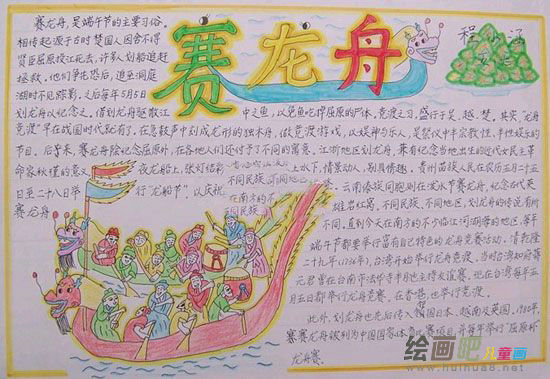 赛龙舟
赛龙舟,是端午节的主要习俗。
相传起源于古时楚国人因舍不得
贤臣屈原投江死去,许多人划船追赶
拯救。他们争先恐后,追至洞庭
湖时不见踪影,之后每年5月5日
划龙舟以纪念之。借划龙舟驱散江
中之鱼,以免鱼吃掉屈原的尸体。竞渡之习,盛行于吴、越、楚。其实,“龙舟
竞渡”早在战国时代就有了。在急鼓声中划成龙形的独木舟,做竞渡游戏,以娱神与乐人,是祭仪中半宗教性、半娱乐性的
节目。后来,赛龙舟除纪念屈原外,在各地人们还付予了不同的寓意。江浙地区划龙舟,兼有纪念当地出生的近代女民主革
命家秋瑾的意义
夜龙船上,张灯结彩
上水下,情景动人,别具情趣。贵州苗族人民在农历五月二十五
日至二十八日举
行“龙船节”,以庆祝
云南傣族同胞则在泼水节赛龙舟,纪念古代英
雄岩红窝。不同民族、不同地区,划龙舟的传说有所
不同。直到今天在南方的不少临江河湖海的地区,每年
端午节都要举行富有自己特色的龙舟竞赛活动。清乾隆
二十九年(1736年),台湾开始举行龙舟竞渡。当时台湾知府蒋
元君曾在台南市法华寺半月池主持友谊赛。现在台湾每年五
月五日都举行龙舟竞赛。在香港,也举行竞渡。
此外,划龙舟也先后传入
国日本、越南及英国。1980年,
赛龙舟被列为中国国家体
比赛项目,并每年举行“屈原杯”
龙舟赛。
绘画吧儿童画
www.huihua8.net